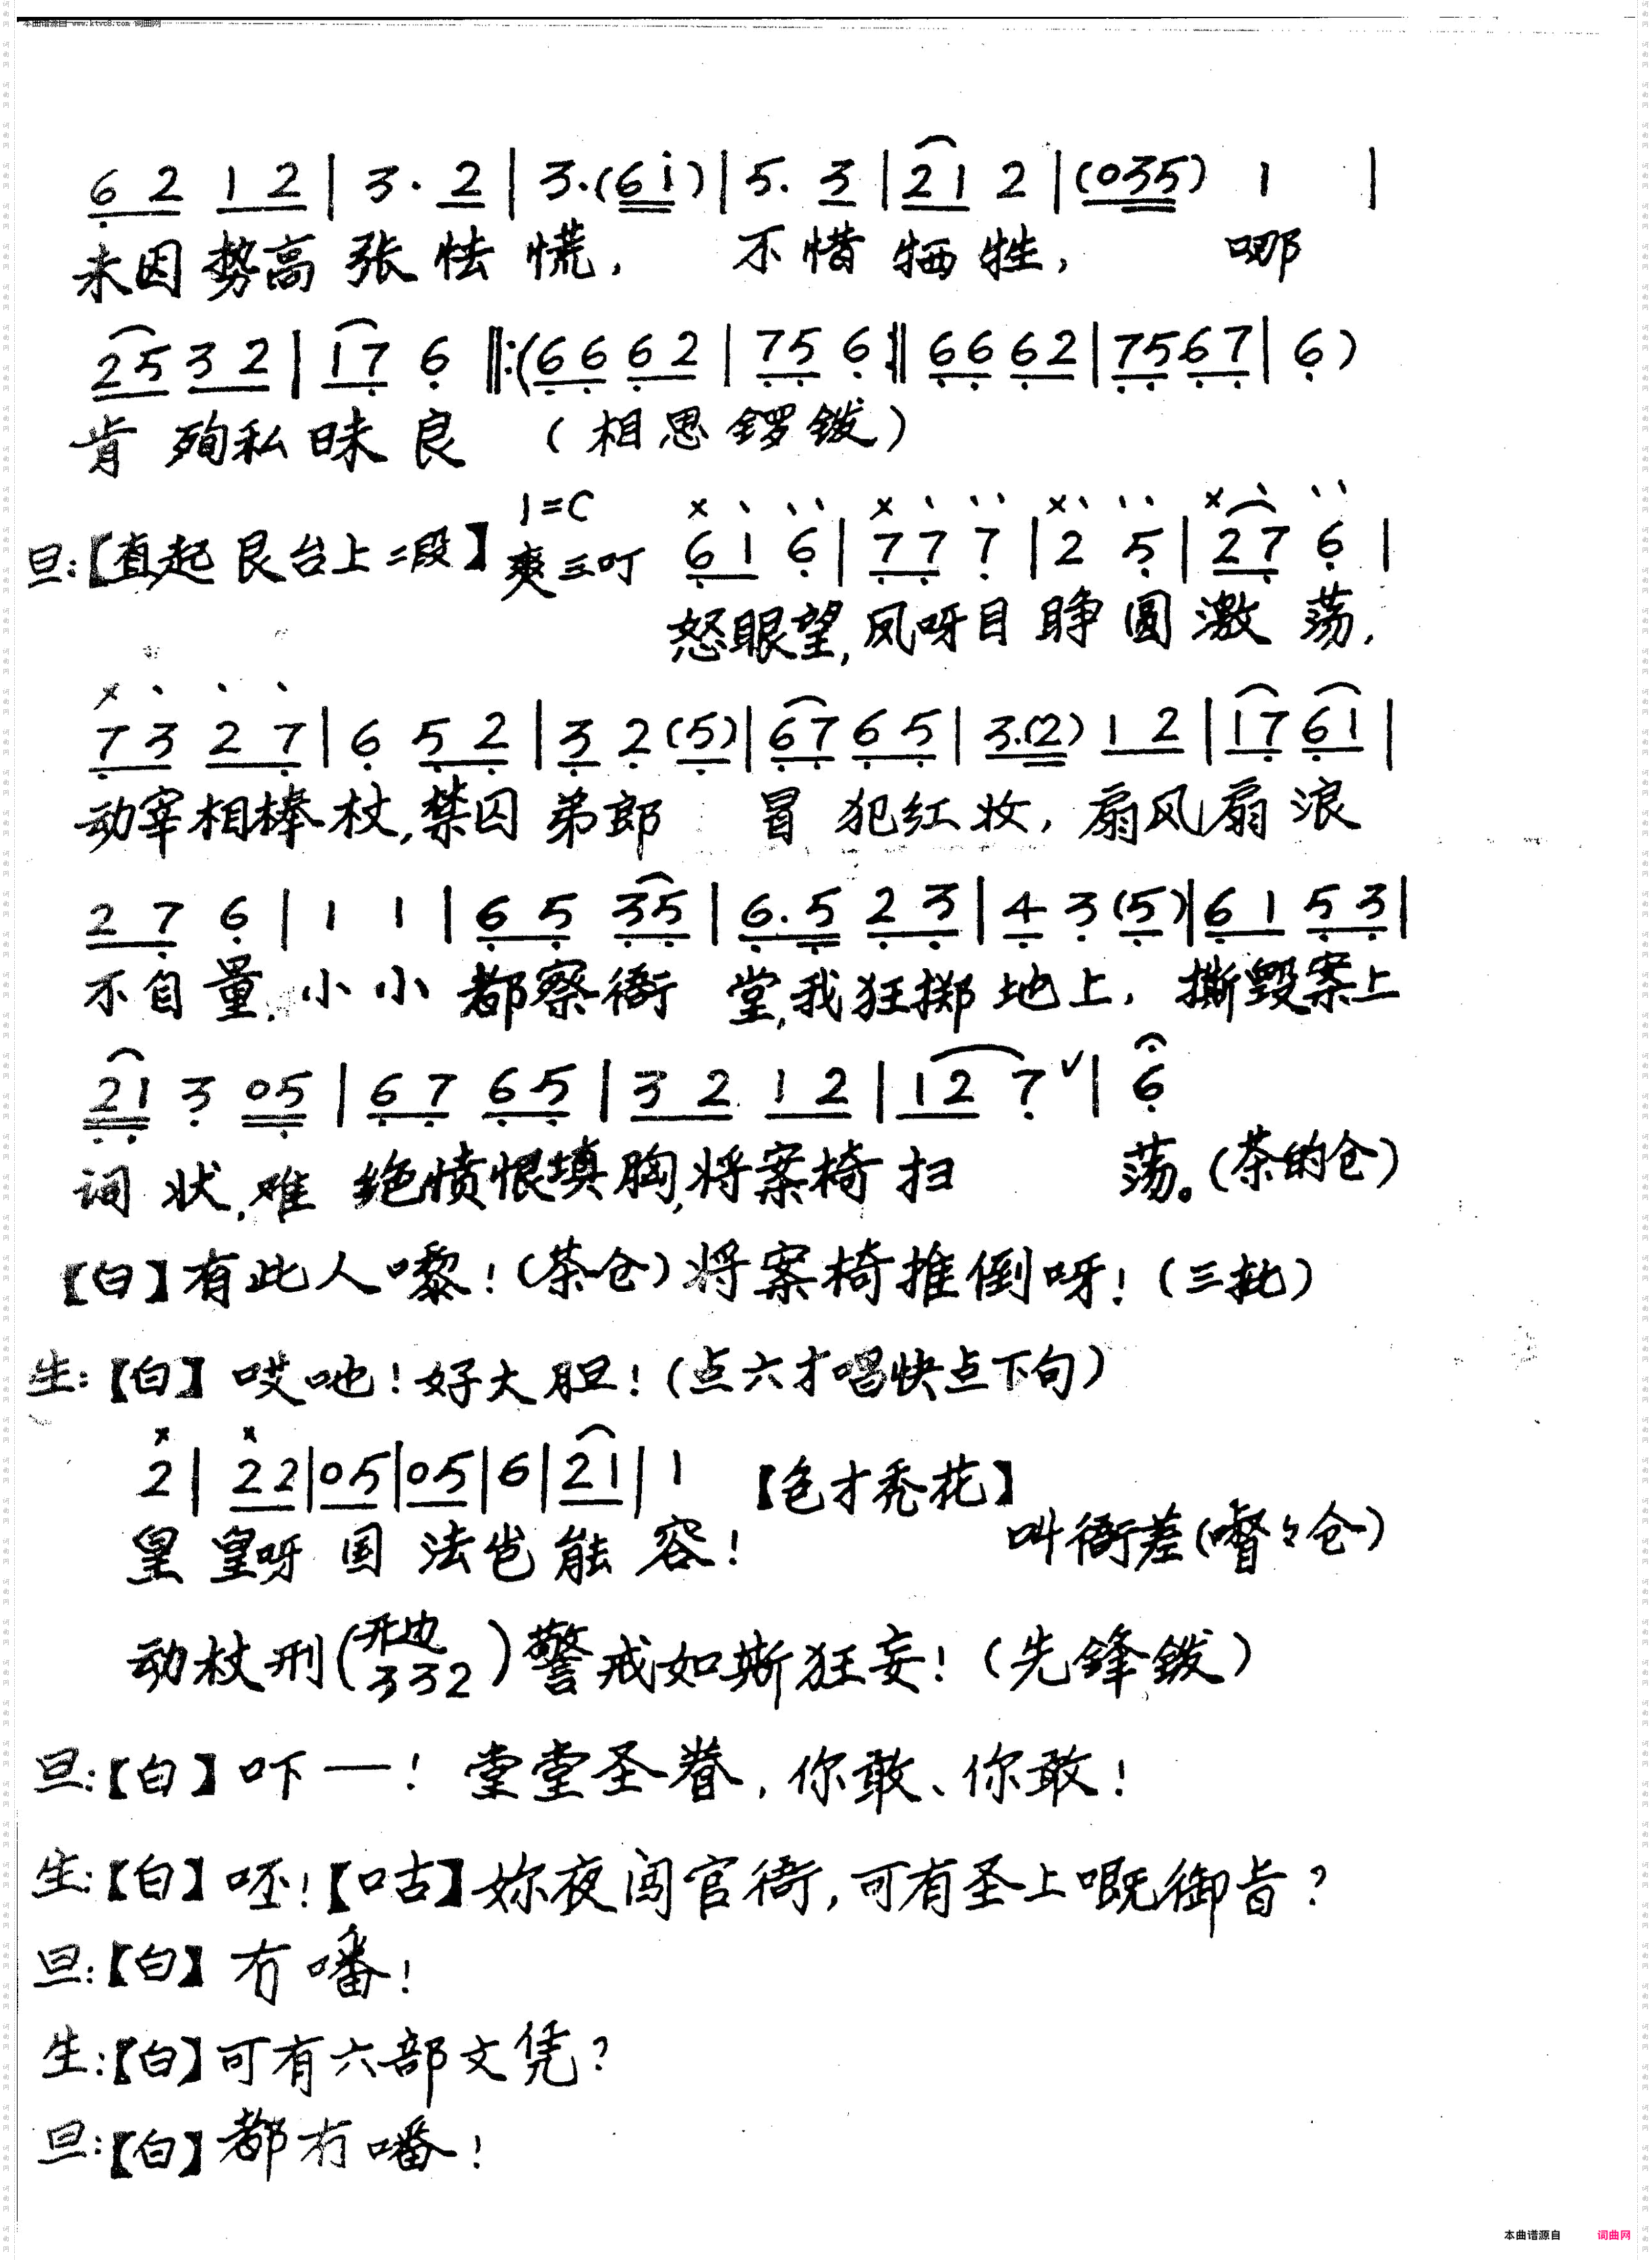 本曲谱源自 www.ktvc8.com 词曲网
6 2 1 2 | 3 · 2 | 3·(6 i) | 5. 3 | 2 1 2 | (035) 1 |
未因势高张怯慌， 不惜牺牲， 哪
2 5 3 2 | 1 7 6 ‖:(6 6 6 2 | 7 5 6 :‖ 6 6 6 2 | 7 5 6 7 | 6 )
肯殉私昧良 （相思锣钹）
旦:【直起艮台上二段】 1=C 爽三叮 6 1 6 | 7 7 7 | 2 5 | 2 7 6 |
怒眼望,凤呀目睁圆激荡,
7 3 2 7 | 6 5 2 | 3 2 (5) | 6 7 6 5 | 3.(2) 1 2 | 1 7 6 1 |
动宰相棒杖,禁囚弟郎 冒犯红妆, 扇风扇浪
2 7 6 | 1 1 | 6 5 3 5 | 6. 5 2 3 | 4 3 (5) | 6 1 5 3 |
不自量,小小都察衙堂,我狂掷地上, 撕毁案上
2 1 3 0 5 | 6 7 6 5 | 3 2 1 2 | 1 2 7 ∨ | 6
词状,难绝愤恨填胸,将案椅扫 荡。(茶的仓)
【白】有此人嚟!(茶仓)将案椅推倒呀!(三批)
生:【白】哎吔!好大胆!(点六才唱快点下句)
2 | 2 2 | 0 5 | 0 5 | 6 | 2 1 | 1 【色才秃花】
皇皇呀国法岂能容! 叫衙差(嘟々仓)
动杖刑(开边 332)警戒如斯狂妄!(先锋钹)
旦:【白】吓—! 堂堂圣眷,你敢、你敢!
生:【白】呸!【咕】妳夜闯官衙,可有圣上嘅御旨?
旦:【白】冇噃!
生:【白】可有六部文凭?
旦:【白】都冇噃!
本曲谱源自 词曲网